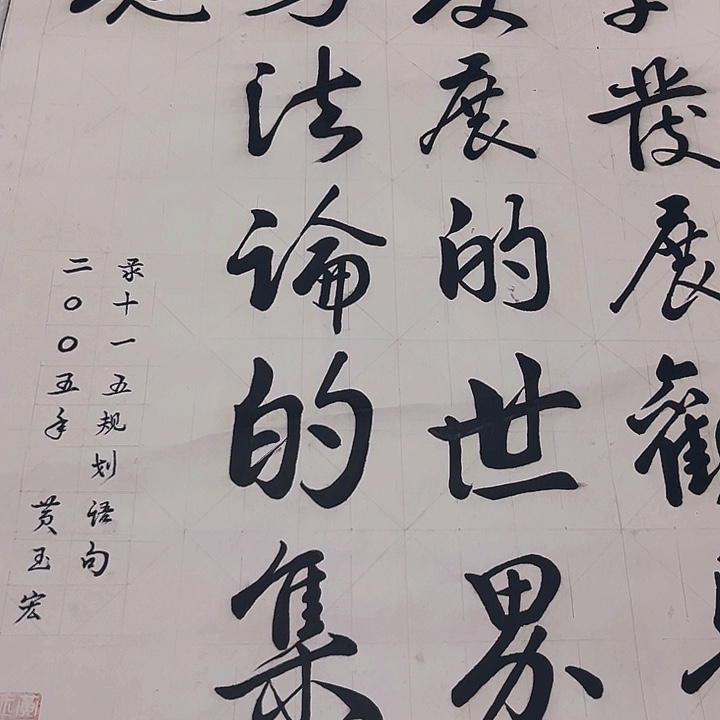 發展觀
展的世界
法論的集
录十一五规划语句
二〇〇五年 黄玉宏